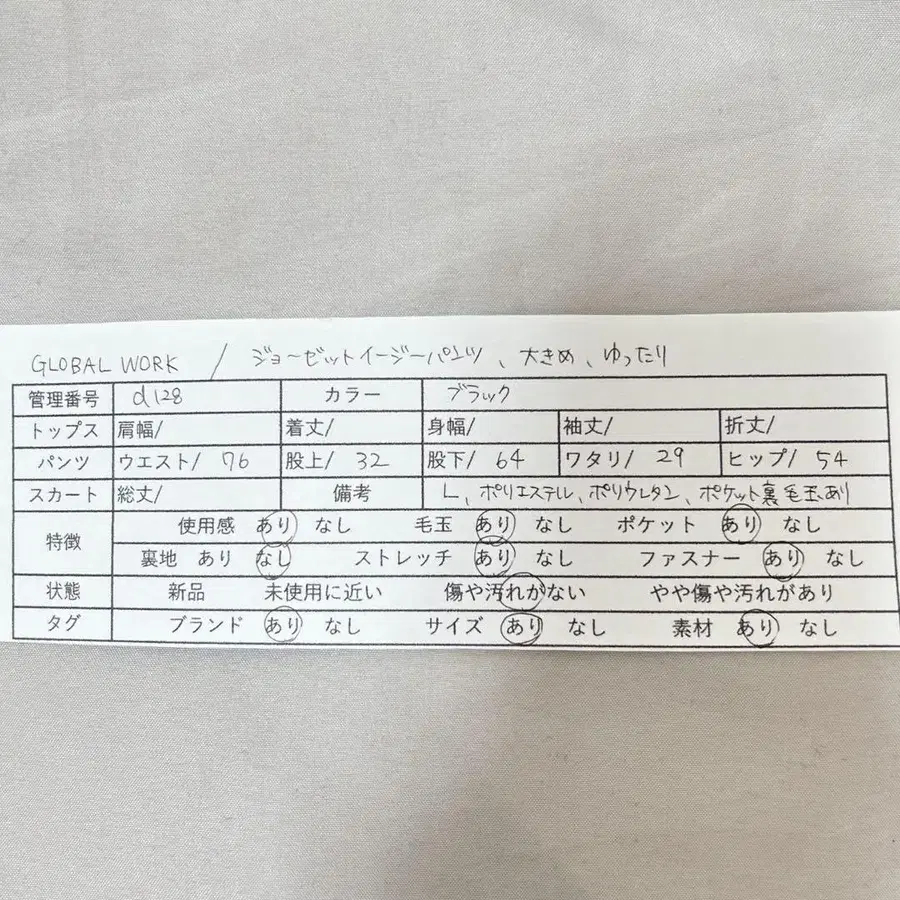 GLOBAL WORK / ジョーゼットイージーパンツ、大きめ、ゆったり
管理番号 d128 カラー ブラック
トップス 肩幅/ 着丈/ 身幅/ 袖丈/ 折丈/
パンツ ウエスト/ 76 股上/ 32 股下/ 64 ワタリ/ 29 ヒップ/ 54
スカート 総丈/ 備考 L、ポリエステル、ポリウレタン、ポケット裏毛玉あり
特徴 使用感 あり なし 毛玉 あり なし ポケット あり なし
裏地 あり なし ストレッチ あり なし ファスナー あり なし
状態 新品 未使用に近い 傷や汚れがない やや傷や汚れがあり
タグ ブランド あり なし サイズ あり なし 素材 あり なし